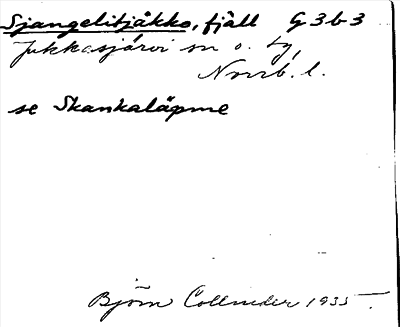 Sjangelitjåkko, fjäll G 3 b 3
Jukkasjärvi sn o. tg,
Norrb. l.
se Skankaläpme
Björn Collinder 1935